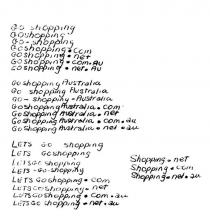 Go shopping
Goshopping
Go-shopping
Goshopping.com
Goshopping.net
Goshopping.com.au
Goshopping.net.Au
Goshopping Australia
Go shopping Australia
Go-shopping-Australia
GoshoppingAustralia.com
GoshoppingAustralia.net
GoshoppingAustralia.com.au
GoshoppingAustralia.net.au
LETS Go shopping
LETS Goshopping
LETSGoshopping
LETS-Go-shopping
LETSGoshopping.com
LETSGoshopping.net
LETSGoshopping.com.au
LETSGoshopping.net.au
Shopping.net
Shopping.com
Shopping.net.au